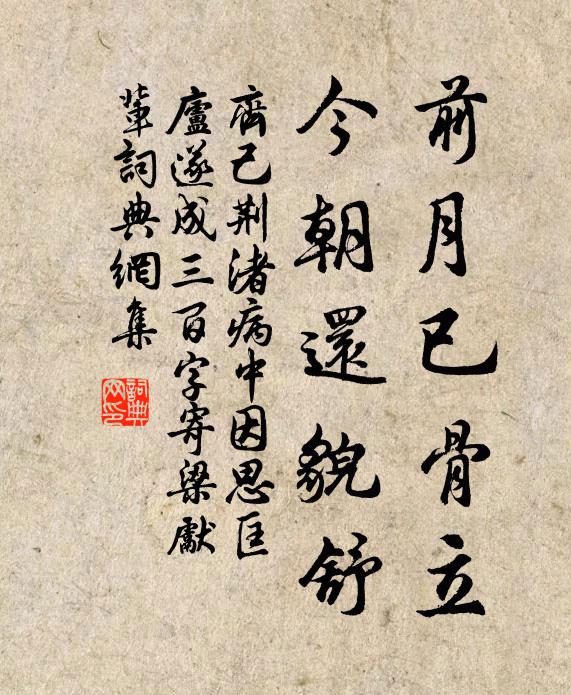 前月已骨立
今朝還貌舒
齊己荆渚病中因思匡
廬遂成三百字寄梁獻
輩詞典網集
詞典
网印